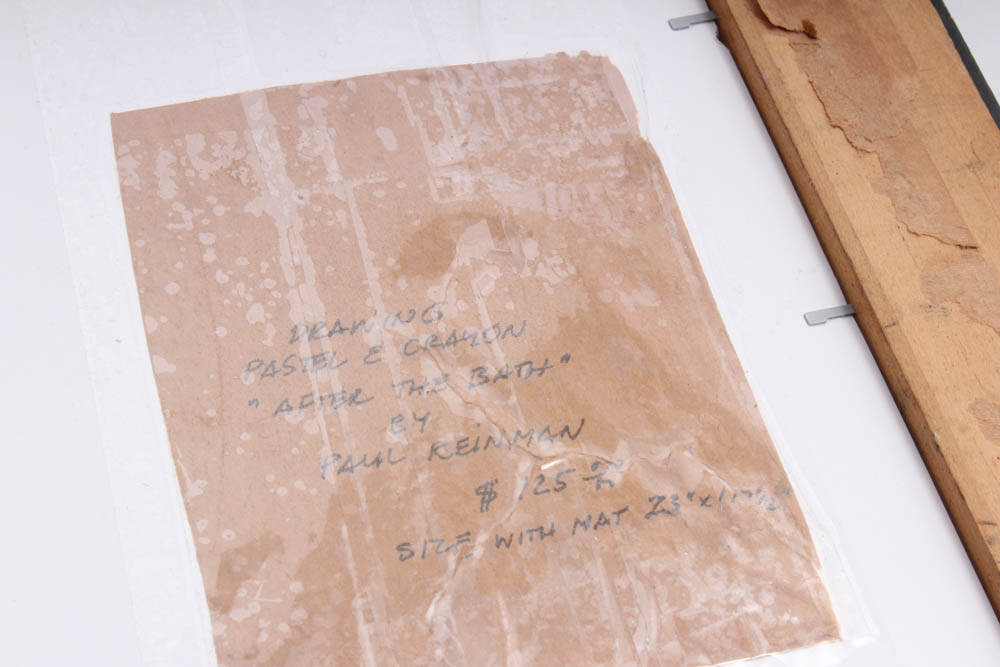 DRAWING
PASTEL & CRAYON
"AFTER THE BATH"
BY
PAUL REINMAN
$ 125 00/00
SIZE WITH MAT 23" x